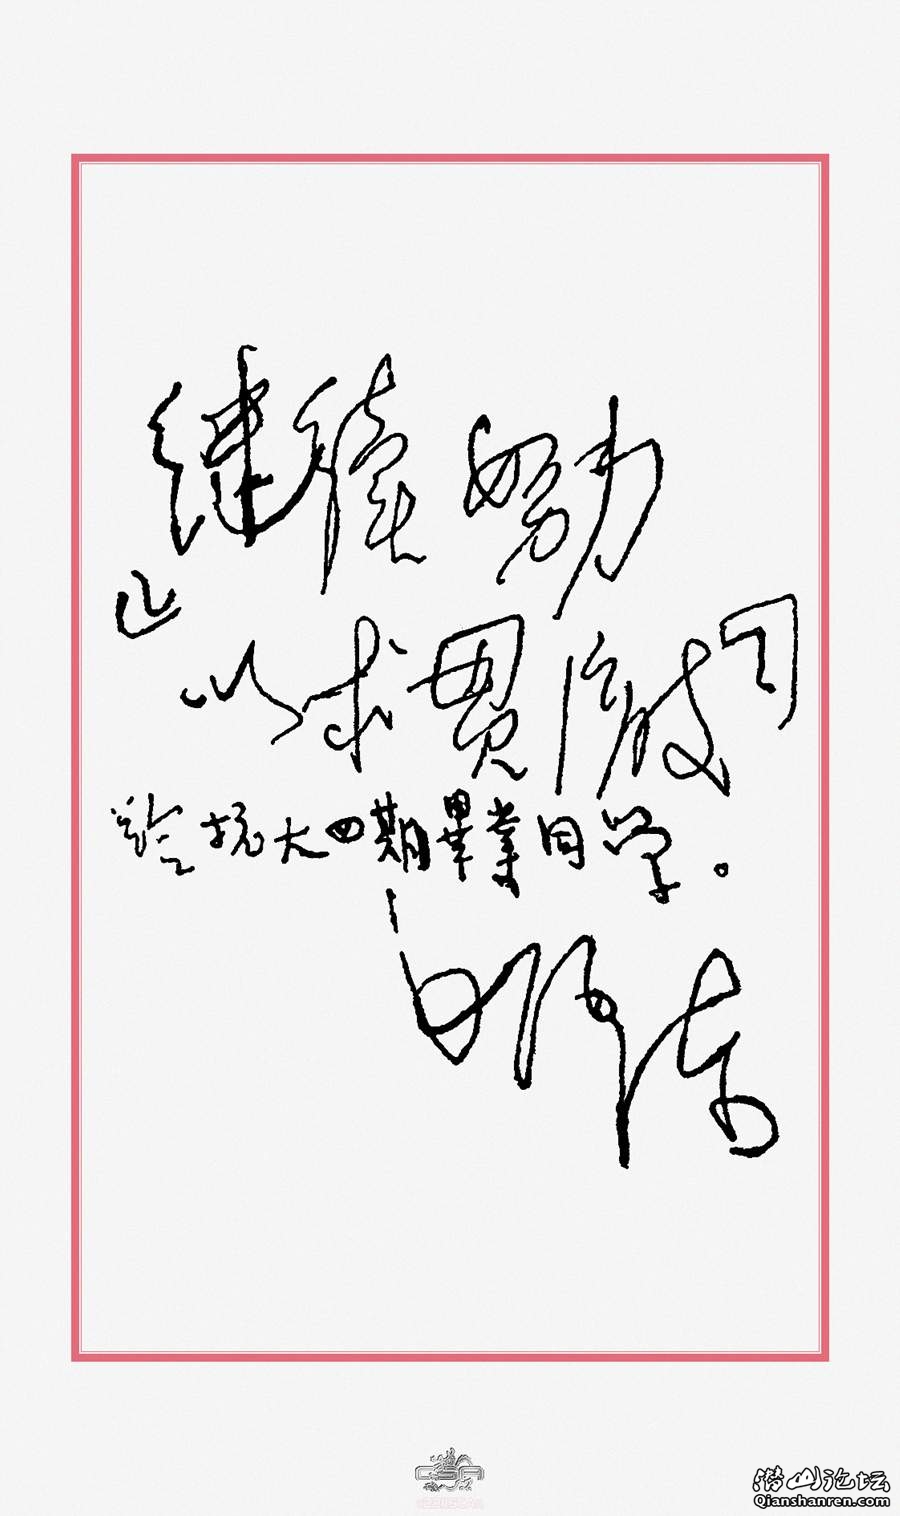 「继续努力
以求贯彻」
给抗大四期畢業同学。
潜山论坛
Qianshanren.com